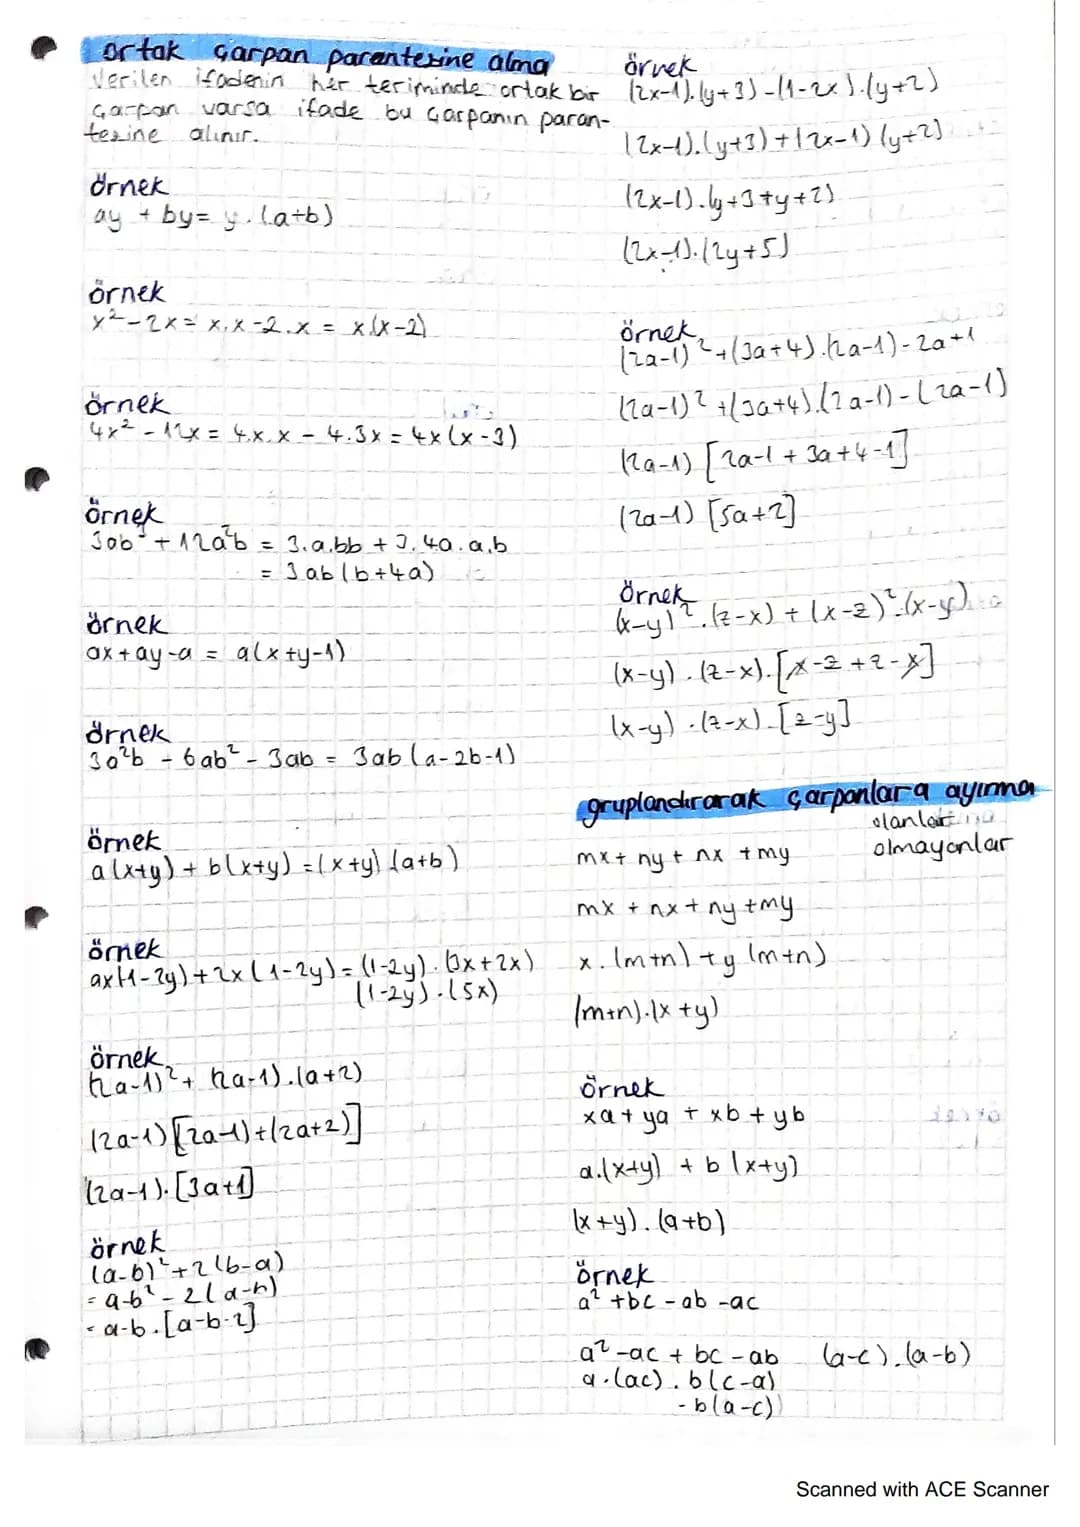 ortak çarpan parantezine alma
Verilen ifadenin her teriminde ortak bir
çarpan varsa ifade bu çarpanın paran-
tezine alınır.
örnek
ay + by = y.(a+b)
örnek
x²-2x = x.x-2.x = x(x-2)
örnek
4x² - 12x = 4.x.x - 4.3x = 4x(x-3)
örnek
3ab² + 12a²b = 3.a.bb + 3.4a.a.b
= 3ab(b+4a)
örnek
ax+ay-a = a(x+y-1)
örnek
3a²b - 6ab² - 3ab = 3ab(a-2b-1)
örnek
a(x+y) + b(x+y) = (x+y) (a+b)
örnek
ax(1-2y)+2x(1-2y) = (1-2y).(3x+2x)
(1-2y).(5x)
örnek
(2a-1)² + (2a-1).(a+2)
(2a-1)[2a-1)+(2a+2)]
(2a-1).[3a+1]
örnek
(a-b)²+2(b-a)
= a-b² - 2(a-b)
= a-b.[a-b-2]
örnek
(2x-1).(y+3)-(1-2x).(y+2)
(2x-1).(y+3)+(2x-1)(y+2)
(2x-1).(y+3+y+2)
(2x-1).(2y+5)
örnek
(2a-1)²+(3a+4).(2a-1)-2a+1
(2a-1)²+(3a+4).(2a-1)-(2a-1)
(2a-1) [2a-1+3a+4-1]
(2a-1) [5a+2]
örnek
(x-y)².(z-x) + (x-z)².(x-y)
(x-y).(z-x).[x-z+z-x]
(x-y).(z-x).[z-y]
gruplandırarak çarpanlara ayırma
olanlar
olmayanlar
mx + ny + nx + my
mx + nx + ny + my
x.(m+n)+y(m+n)
(m+n).(x+y)
örnek
xa + ya + xb + yb
a.(x+y) + b(x+y)
(x+y).(a+b)
örnek
a² + bc - ab - ac
a² - ac + bc - ab (a-c).(a-b)
a.(ac).b(c-a)
-b(a-c)
Scanned with ACE Scanner